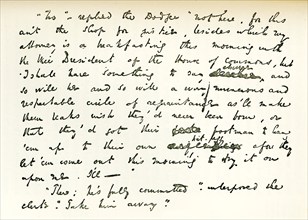 "No" replied the Dodger "not here, for this
ain't the shop for justice; besides which my
attorney is a breakfasting this morning with
the Vice President of the House of Commons, but
I shall have something to say elsewhere and
so will he and so will a wery numerous and
respectable circle of acquaintance as'll make
them beaks wish they'd never been born, or
that they'd got their footman to hang
'em up to their own hat-pegs afore they
let 'em come out this morning to try it on
upon me. I'll —"
"There; he's fully committed" interposed the
clerk: "Take him away."